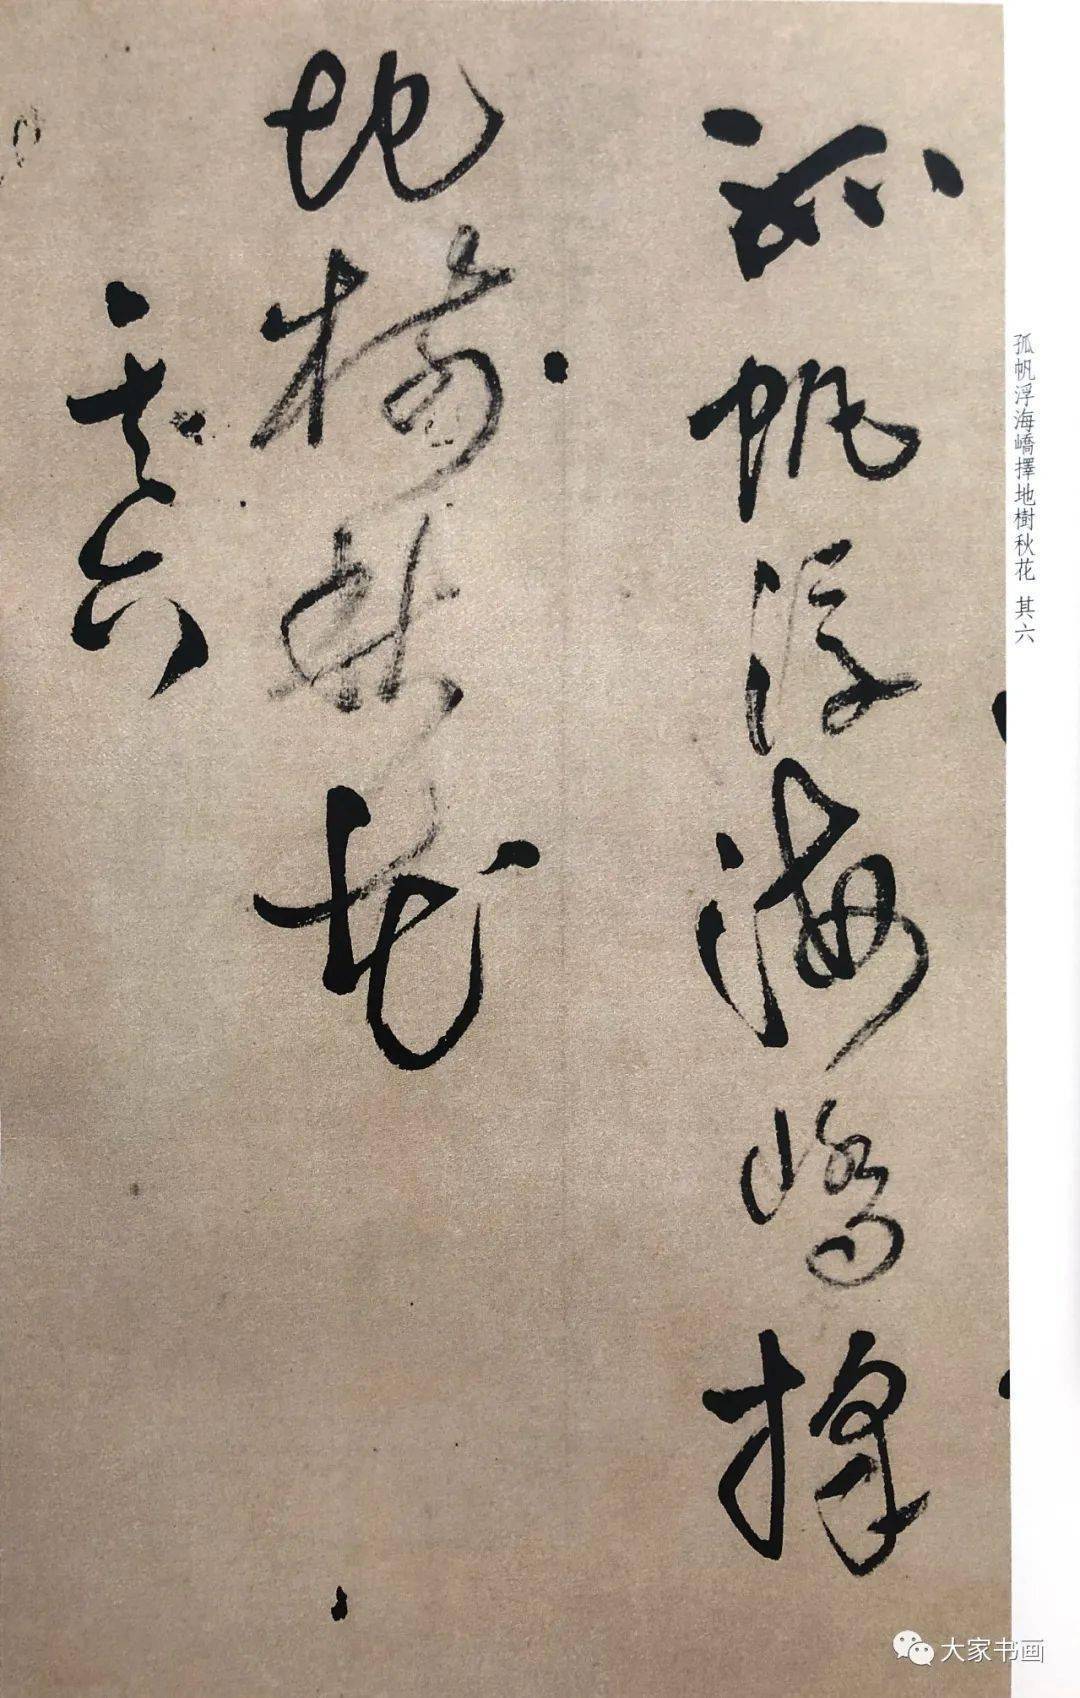 孤帆浮海嶠擇
地樹秋花
其六
孤帆浮海嶠擇地樹秋花 其六
大家书画